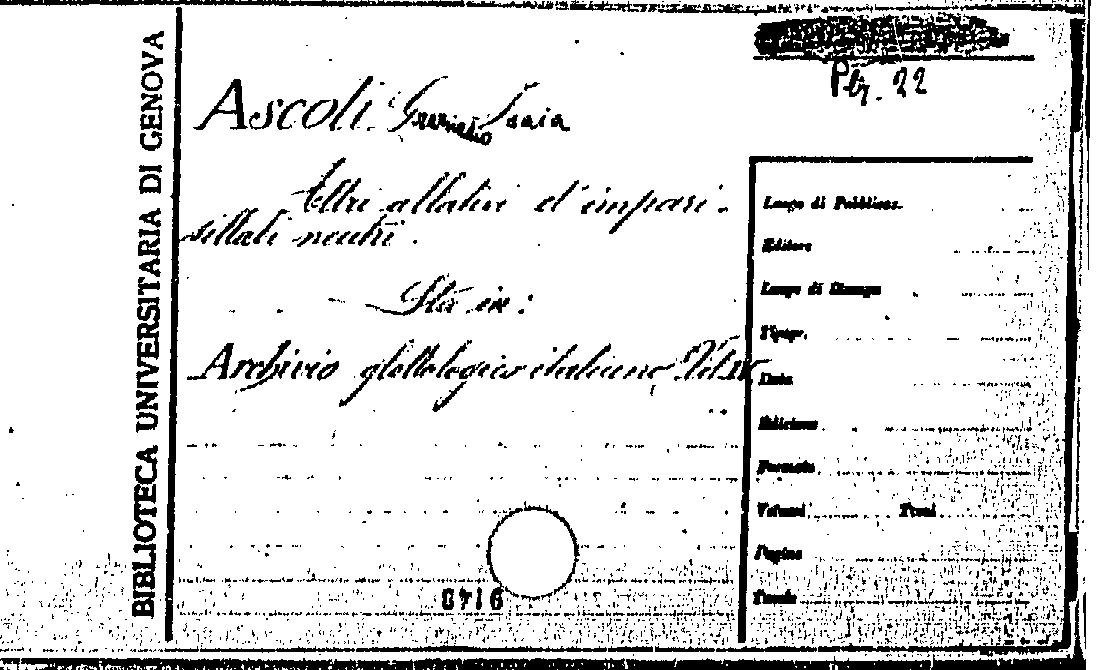 BIBLIOTECA UNIVERSITARIA DI GENOVA
Ascoli Graziadio Isaia
Altri allativi d'impari-
sillabi neutri.
Sta in:
Archivio glottologico italiano Vol.
22
Luogo di Pubblicaz.
Editore
Luogo di Stampa
Tipogr.
Data
Edizione
Formato
Volumi Tomi
Pagine
Tavole